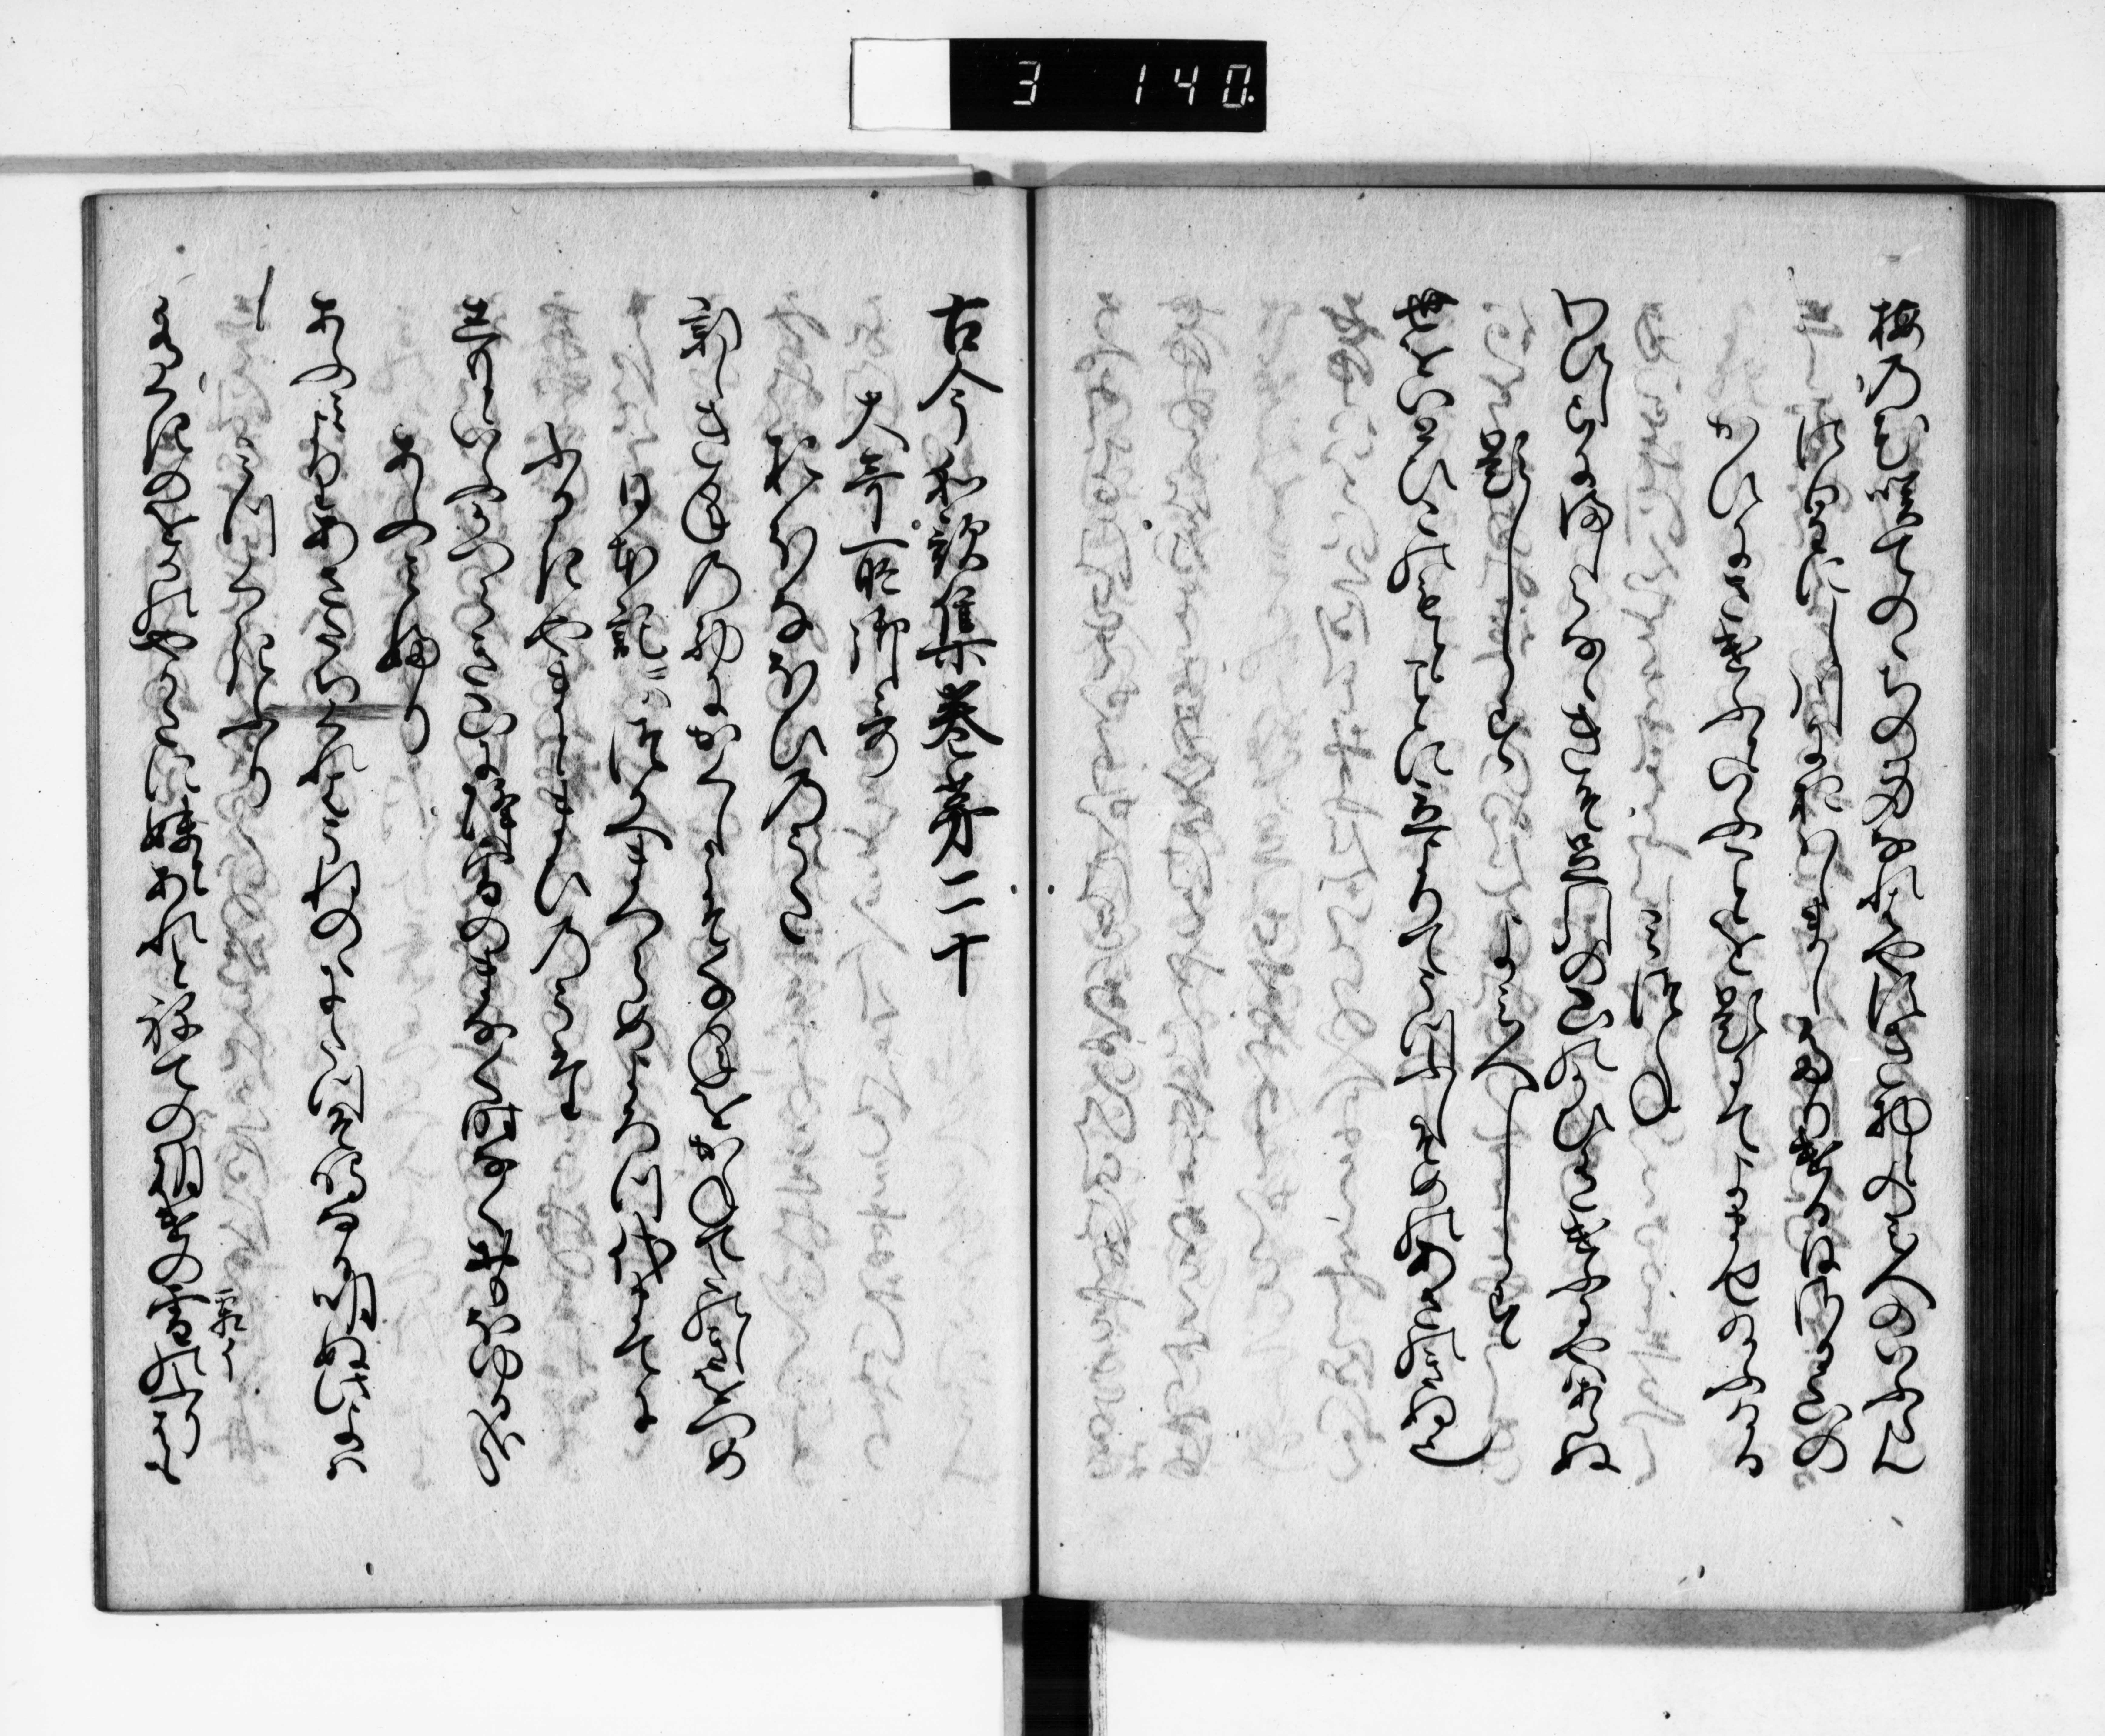 3 140.
梅の花さきてのゝちの身なれはやすき物とのみ人のいふらん
法皇にし河におはしましたりける日さる山の
かひにさけふといふことを題にてよませたまふける
みつね
わひしらにましらなゝきそ足引の山のかひあるけふにやはあらぬ
題しらす　よみ人しらす
世をいとひこのもとことに立よりてうつふしそめのあさのきぬなり
古今和歌集巻第二十
大哥所御哥
おほなほひのうた
新しき年の始にかくしこそちとせをかねてたのしきをつめ
日本記にはつかへまつらめよろつ代まてに
ふるきやまとまひのうた
しもとゆふかつらき山にふる雪のまなく時なくおもほゆるかな
あふみふり
あふみよりあさたちくれはうねのゝにたつそなくなる明ぬこのよは
みつくきふり
水くきのをかのやかたに妹とあれとねての朝けの霜のふりはも